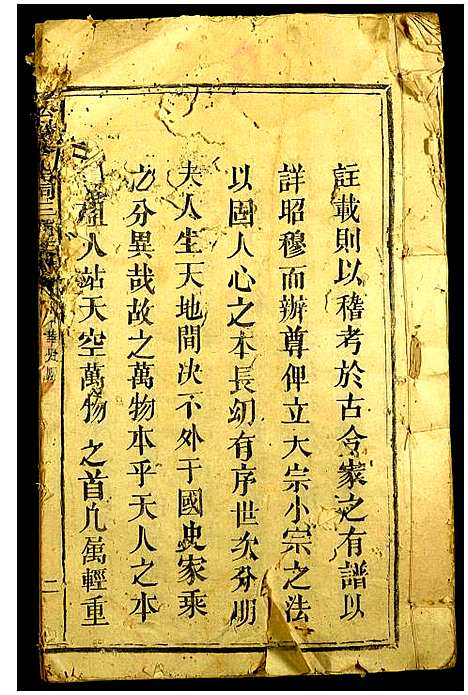 註載則以稽考於古今家之有譜以
詳昭穆而辦尊俾立大宗小宗之法
以固人心之本長幼有序世次分明
夫人生天地間决不外于國史家乘
之分異哉故之萬物本乎天人之本
人站天空萬物之首凡萬輕重
二